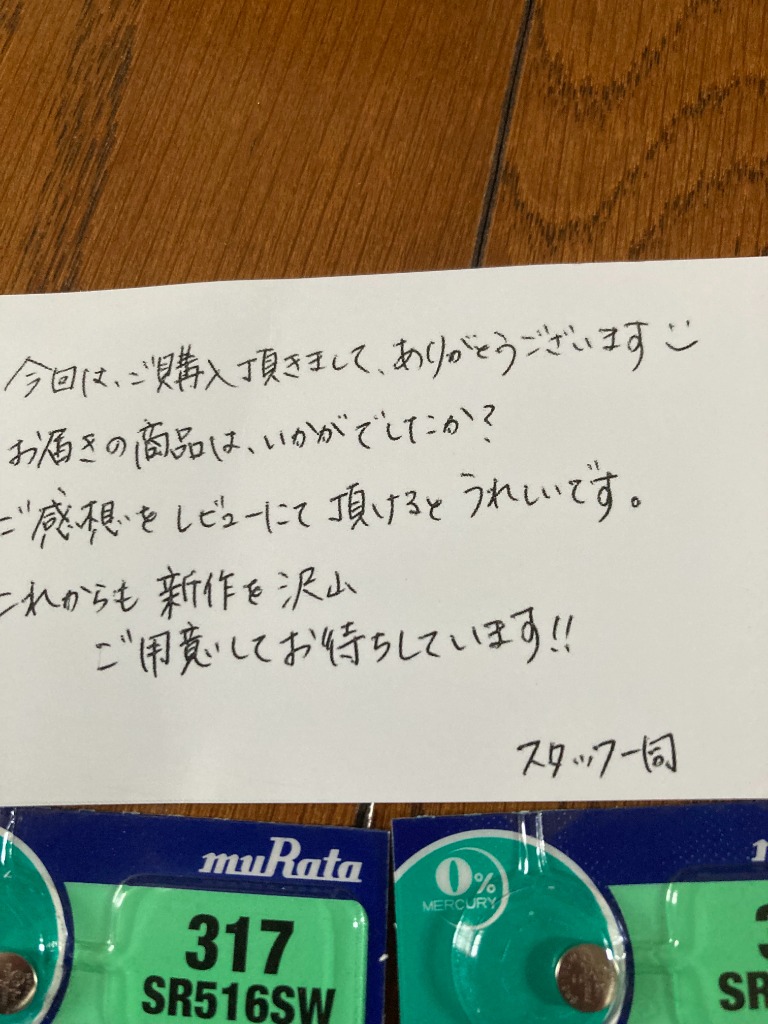 今回は、ご購入頂きまして、ありがとうございます
お届きの商品は、いかがでしたか?
ご感想をレビューにて頂けるとうれしいです。
これからも新作を沢山
ご用意してお待ちしています!!
スタッフ一同
muRata
317
SR516SW
0%
MERCURY
m
3
SR